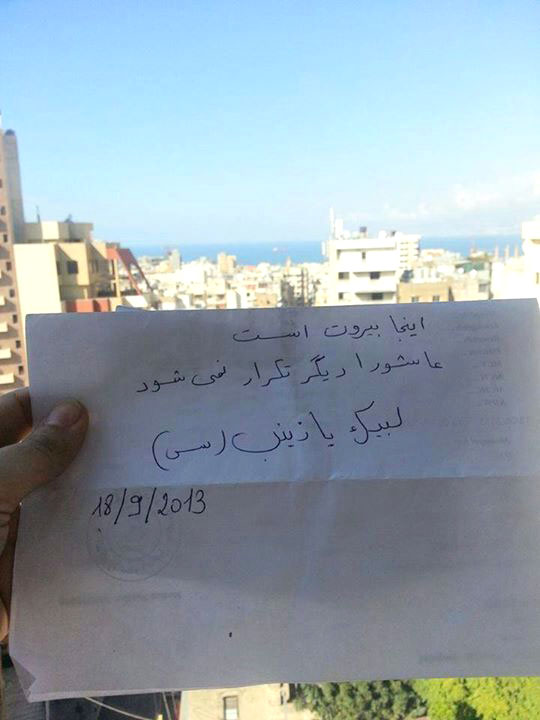 اینجا بیروت است
عاشورا دیگر تکرار نمی شود
لبیک یا زینب (س)
18/9/2013